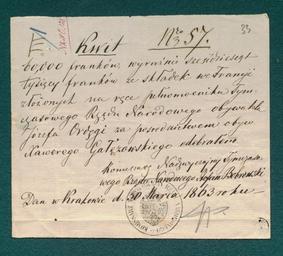 33
Kwit Nro 57.
60,000 franków, wyraźnie sześćdziesiąt
tysięcy franków ze składek w Francyi
złożonych na ręce pełnomocnika Tym-
czasowego Rządu Narodowego obywatela
Józefa Ordęgi za pośrednictwem obyw
Xawerego Gałęzowskiego odebrałem
Komisarz Nadzwyczajny Tymczaso-
wego Rządu Narodowego Stefan Bobrowski
Dan w Krakowie d. 30 Marca 1863 roku